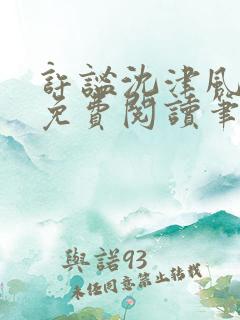 許謐沈津風
免費閱讀筆
與諾93
未任同意禁止轉載